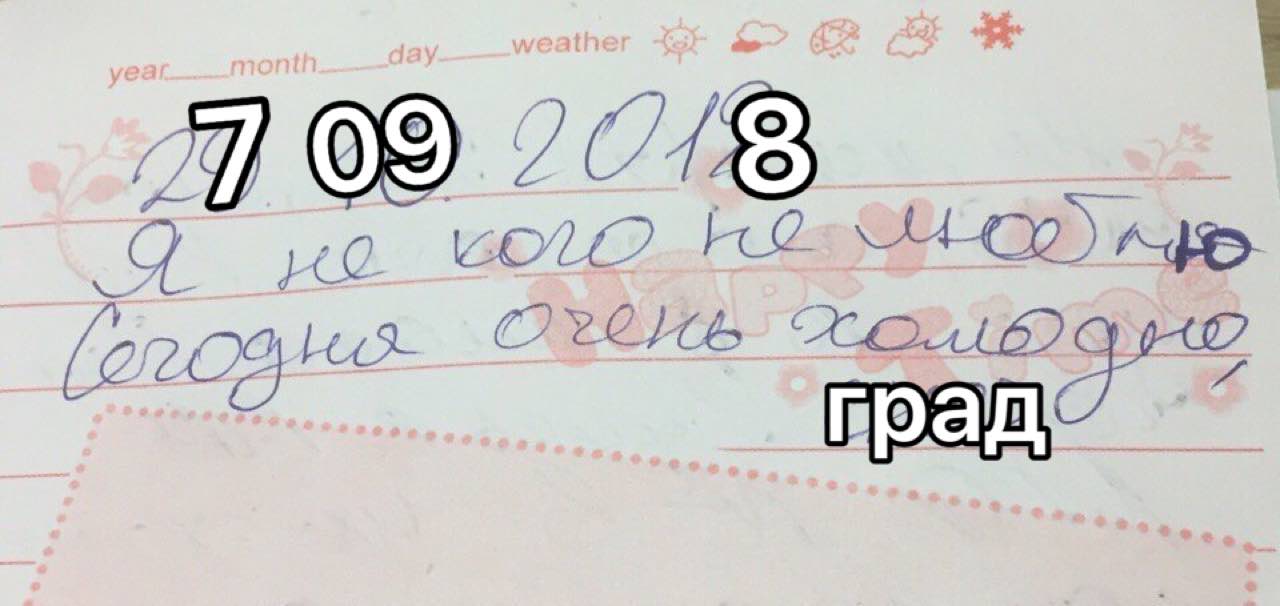 year____month____day____weather
27 09 2018
Я не кого не люблю
Сегодня очень холодно,
град
HAPPY
Time